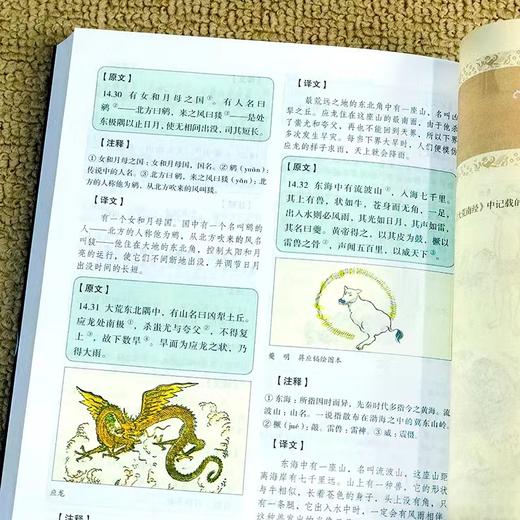 【原文】
14.30 有女和月母之国①。有人名曰
鹓②——北方曰鹓，来之风曰狻③——是处
东极隅以止日月，使无相间出没，司其短长。
【注释】
①女和月母之国：女和月母，国名。②鹓（yuān）：
传说中的人名。③北方曰鹓，来之风曰狻（yǎn）：北
方的人称他为鹓，从北方吹来的风叫狻。
【译文】
有一个女和月母国。国中有一个名叫鹓的人
——北方的人称他为鹓，从北方吹来的风名
叫狻——他住在大地的东北角，控制太阳和月
亮的运行，使它们不间断地出没，并调节日月
出没时间的长短。
【原文】
14.31 大荒东北隅中，有山名曰凶犁土丘。
应龙处南极①，杀蚩尤与夸父②，不得复
上③，故下数旱④。旱而为应龙之状，乃
得大雨。
应龙
【注释】
【译文】
最荒远之地的东北角中有一座山，名叫凶
犁土丘。应龙住在这座山的最南面，由于他杀
了蚩尤和夸父，再也不能回到天界，所以下界
多次发生旱灾。每当下界大旱时，人们便模仿
应龙的样子求雨，天上就会降雨。
【原文】
14.32 东海中有流波山①，入海七千里。
其上有兽，状如牛，苍身而无角，一足，
出入水则必风雨，其光如日月，其声如雷，
其名曰夔。黄帝得之，以其皮为鼓，橛以
雷兽之骨②，声闻五百里，以威天下③。
夔 明 蒋应镐绘图本
【注释】
①东海：所指因时而异，先秦时代多指今之黄海。流
波山：山名。一说指散布在渤海之中的冀东山岭。
②橛（jué）：敲。雷兽：雷神。③威：震慑。
【译文】
东海中有一座山，名叫流波山，这座山距
离海岸有七千里。山上有一种兽，它的形状
与牛相似，长着苍色的身子，头上没有角，只
有一条腿，它出入水中时，一定会有风雨相伴
《大荒南经》中记载的